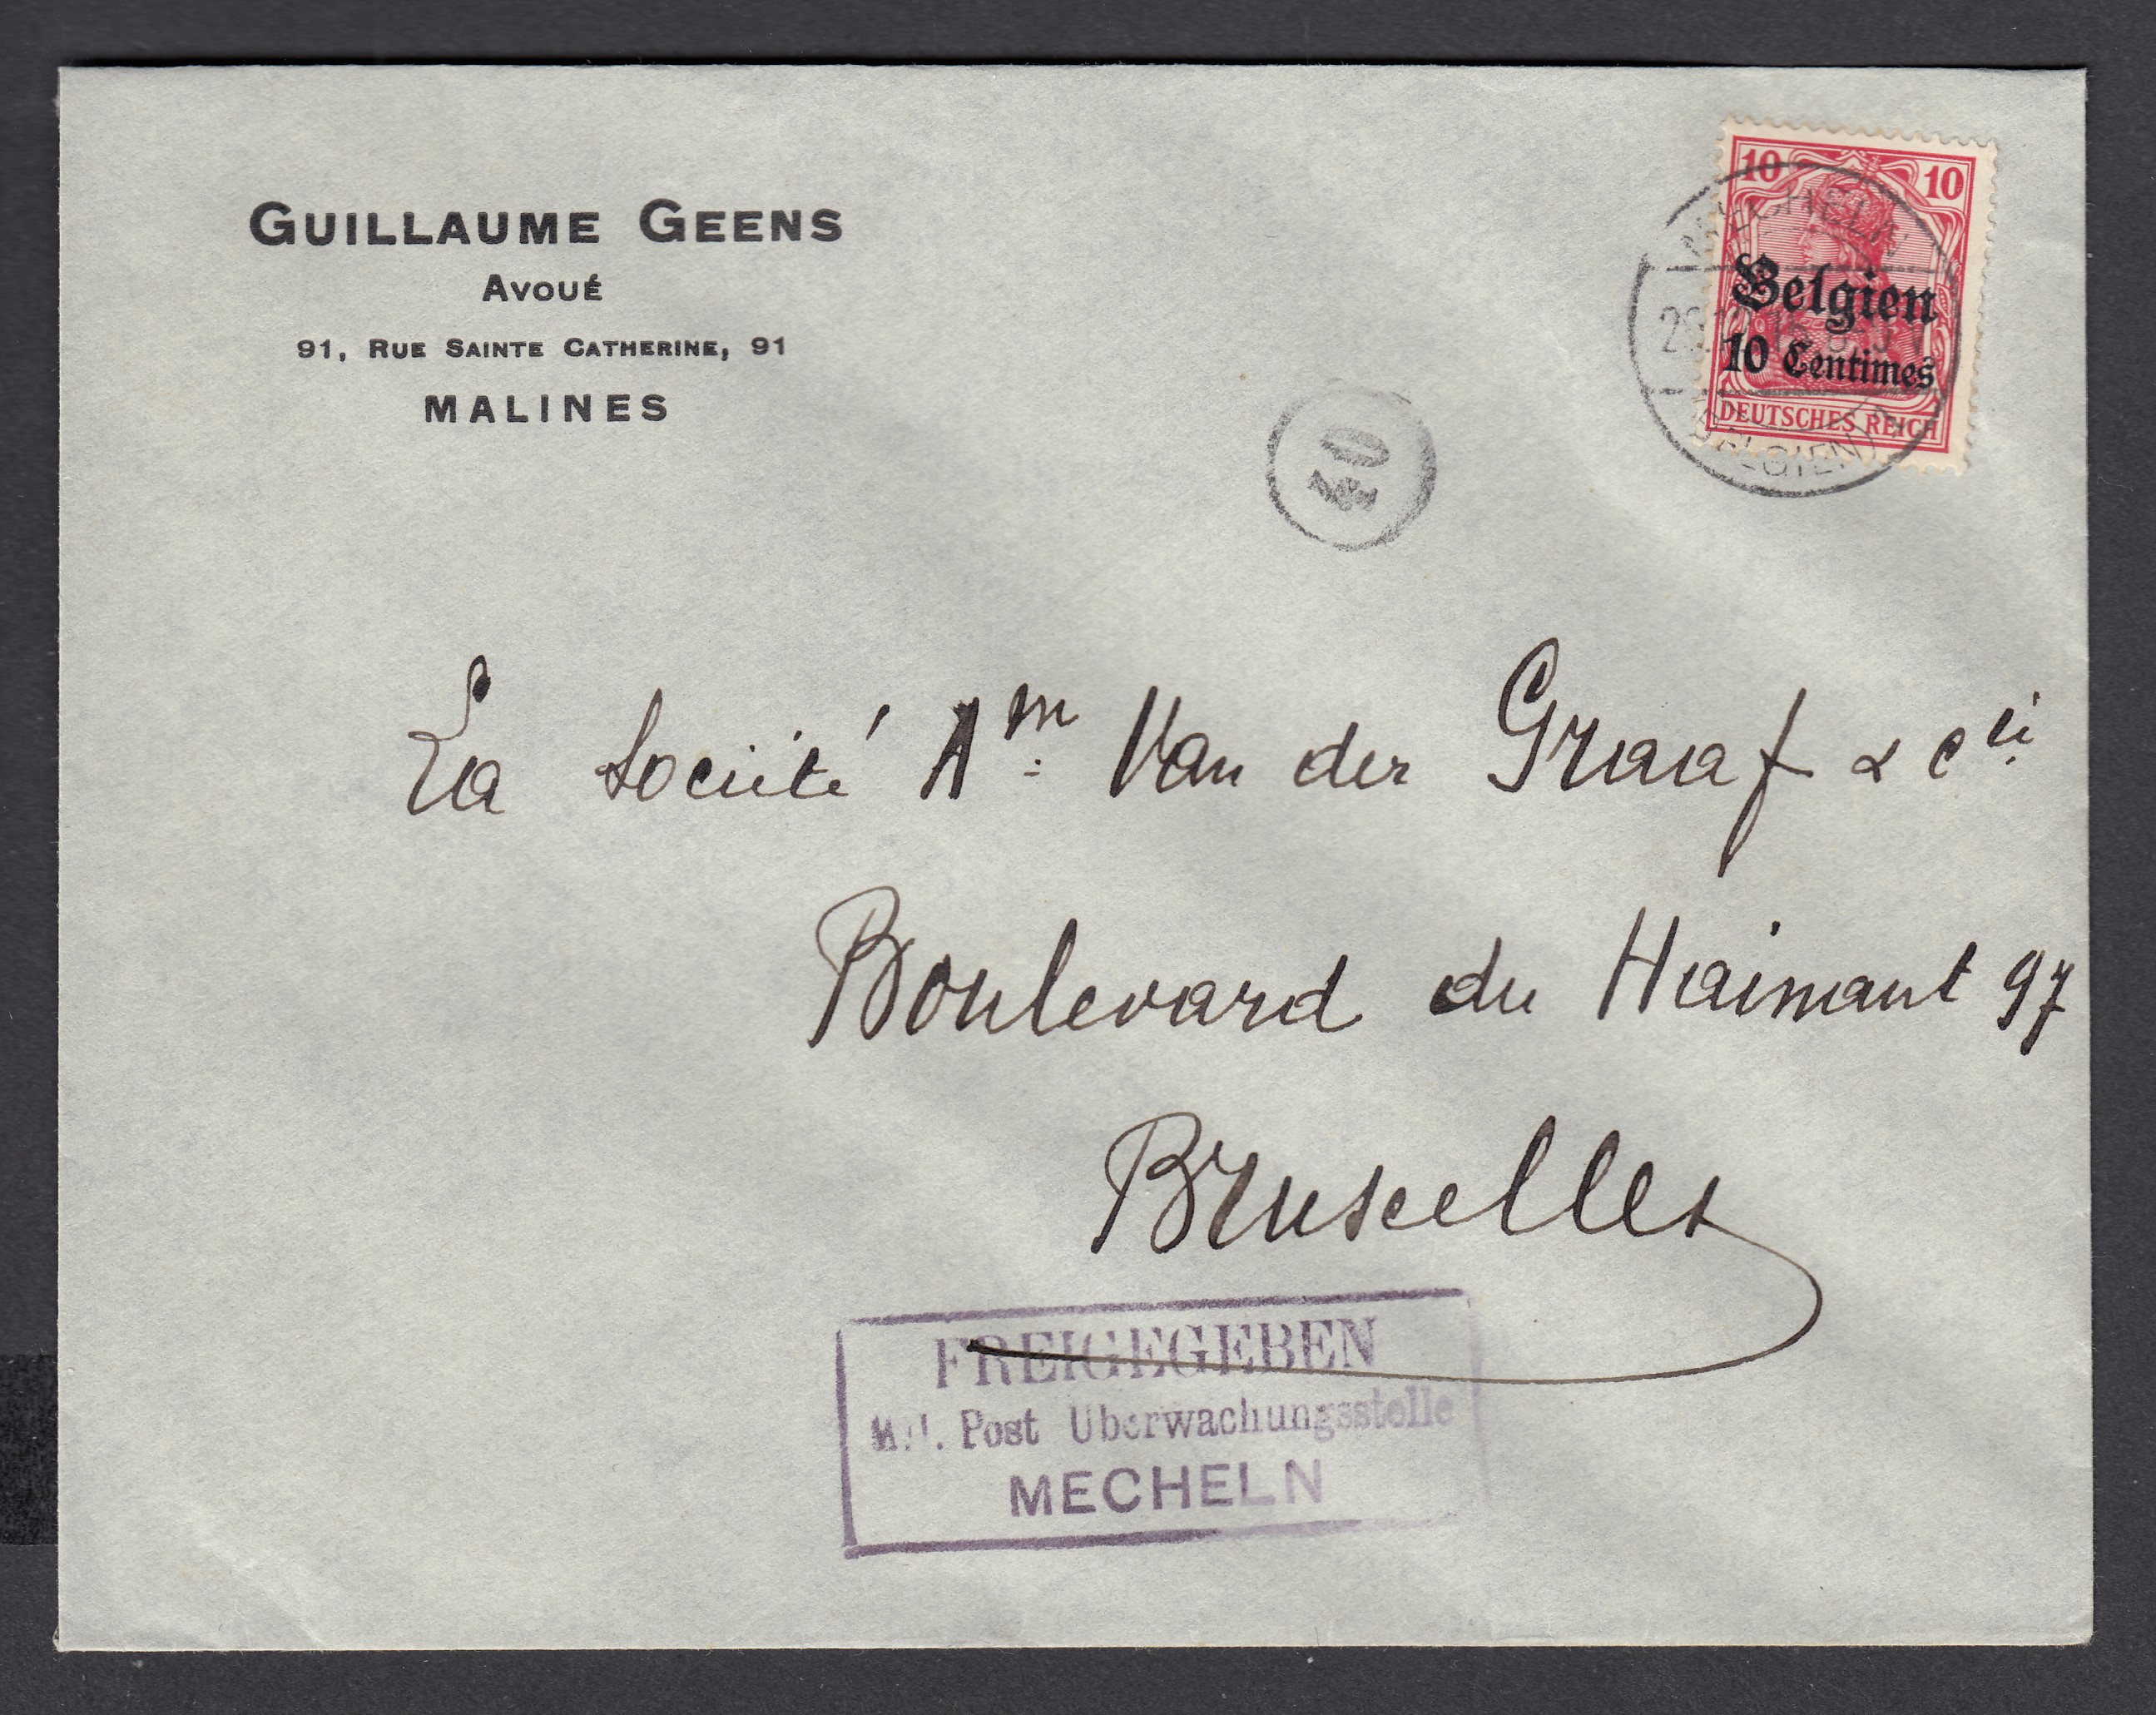 GUILLAUME GEENS
AVOUÉ
91, RUE SAINTE CATHERINE, 91
MALINES
10 10
Belgien
10 Centimes
DEUTSCHES REICH
MECHELN
(BELGIEN)
La Société Am Van der Graaf & Cie
Boulevard du Hainaut 97
Bruxelles
FREIGEGEBEN
Mil. Post Uberwachungsstelle
MECHELN